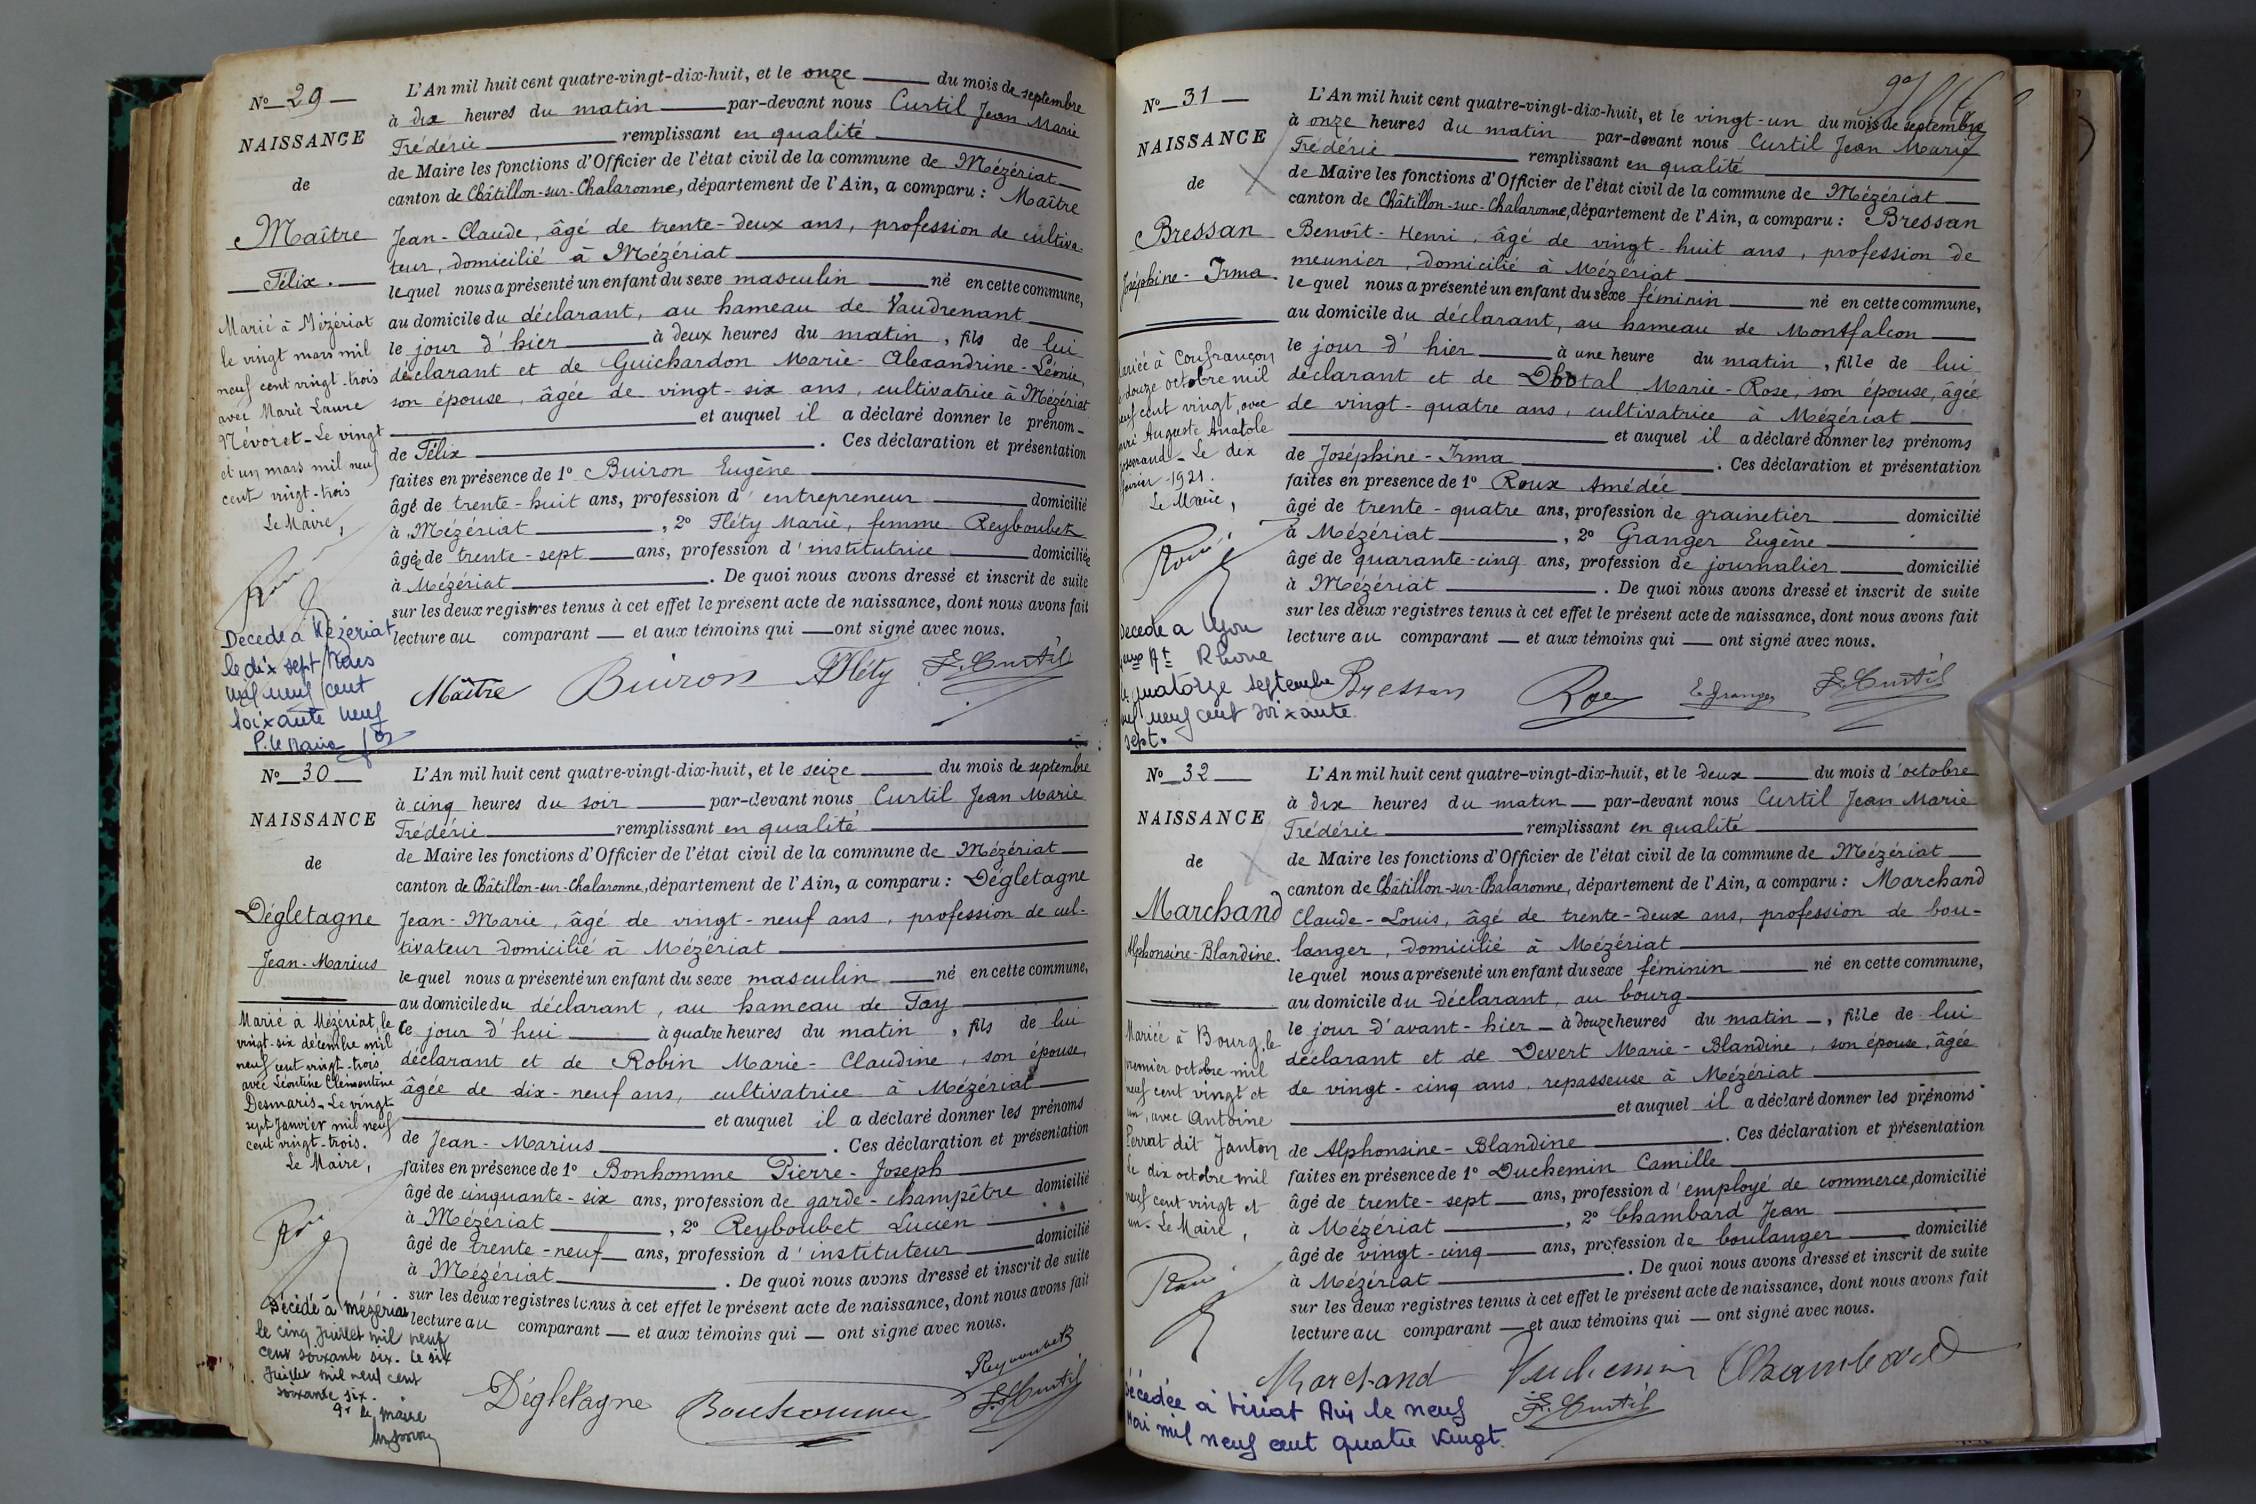 N° 29
NAISSANCE
de
Maître
Félix.
Marié à Mézériat
le vingt mars mil
neuf cent vingt-trois
avec Marie Laure
Névoret - Le vingt
et un mars mil neuf
cent vingt-trois
Le Maire,
Décédé à Mézériat
le dix sept Mars
mil neuf cent
soixante neuf
P. le Maire
L'An mil huit cent quatre-vingt-dix-huit, et le onze du mois de septembre
à dix heures du matin par-devant nous Curtil Jean Marie
Frédéric remplissant en qualité
de Maire les fonctions d'Officier de l'état civil de la commune de Mézériat
canton de Châtillon-sur-Chalaronne, département de l'Ain, a comparu : Maître
Jean-Claude, âgé de trente-deux ans, profession de cultiva-
teur, domicilié à Mézériat
lequel nous a présenté un enfant du sexe masculin né en cette commune,
au domicile du déclarant, au hameau de Vaudrenant
le jour d'hier à deux heures du matin, fils de lui
déclarant et de Guichardon Marie-Alexandrine-Léonie,
son épouse, âgée de vingt-six ans, cultivatrice à Mézériat
et auquel il a déclaré donner le prénom
de Félix. Ces déclaration et présentation
faites en présence de 1° Buiron Eugène
âgé de trente-huit ans, profession d'entrepreneur domicilié
à Mézériat, 2° Fléty Marie, femme Reyboubet
âgée de trente-sept ans, profession d'institutrice domiciliée
à Mézériat. De quoi nous avons dressé et inscrit de suite
sur les deux registres tenus à cet effet le présent acte de naissance, dont nous avons fait
lecture au comparant et aux témoins qui ont signé avec nous.
Maître Buiron Fléty F. Curtil
N° 30
NAISSANCE
de
Dégletagne
Jean-Marius
Marié à Mézériat, le
vingt-six décembre mil
neuf cent vingt-trois
avec Léontine Clémentine
Desmaris. Le vingt
sept janvier mil neuf
cent vingt-trois.
Le Maire,
Décédé à Mézériat
le cinq Juillet mil neuf
cent soixante six. Le six
Juillet mil neuf cent
soixante six.
Pr le Maire
L'An mil huit cent quatre-vingt-dix-huit, et le seize du mois de septembre
à cinq heures du soir par-devant nous Curtil Jean Marie
Frédéric remplissant en qualité
de Maire les fonctions d'Officier de l'état civil de la commune de Mézériat
canton de Châtillon-sur-Chalaronne, département de l'Ain, a comparu : Dégletagne
Jean-Marie, âgé de vingt-neuf ans, profession de cul-
tivateur domicilié à Mézériat
lequel nous a présenté un enfant du sexe masculin né en cette commune,
au domicile du déclarant, au hameau de Fay
ce jour d'hui à quatre heures du matin, fils de lui
déclarant et de Robin Marie-Claudine, son épouse,
âgée de dix-neuf ans, cultivatrice à Mézériat
et auquel il a déclaré donner les prénoms
de Jean-Marius. Ces déclaration et présentation
faites en présence de 1° Bonhomme Pierre-Joseph
âgé de cinquante-six ans, profession de garde-champêtre domicilié
à Mézériat, 2° Reyboubet Lucien
âgé de trente-neuf ans, profession d'instituteur domicilié
à Mézériat. De quoi nous avons dressé et inscrit de suite
sur les deux registres tenus à cet effet le présent acte de naissance, dont nous avons fait
lecture au comparant et aux témoins qui ont signé avec nous.
Reyboubet
Dégletagne Bonhomme F. Curtil
N° 31
NAISSANCE
de
Bressan
Joséphine-Irma
Mariée à Confrançon
douze octobre mil
neuf cent vingt, avec
Auguste Anatole
Le dix
février 1921.
Le Maire,
Décédé à Lyon
Art Rhône
le quatorze septembre
mil neuf cent soixante
sept.
L'An mil huit cent quatre-vingt-dix-huit, et le vingt-un du mois de septembre
à onze heures du matin par-devant nous Curtil Jean Marie
Frédéric remplissant en qualité
de Maire les fonctions d'Officier de l'état civil de la commune de Mézériat
canton de Châtillon-sur-Chalaronne, département de l'Ain, a comparu : Bressan
Benoît-Henri, âgé de vingt-huit ans, profession de
meunier, domicilié à Mézériat
lequel nous a présenté un enfant du sexe féminin né en cette commune,
au domicile du déclarant, au hameau de Montfalcon
le jour d'hier à une heure du matin, fille de lui
déclarant et de Marie-Rose, son épouse, âgée
de vingt-quatre ans, cultivatrice à Mézériat
et auquel il a déclaré donner les prénoms
de Joséphine-Irma. Ces déclaration et présentation
faites en présence de 1° Roux Amédée
âgé de trente-quatre ans, profession de grainetier domicilié
à Mézériat, 2° Granger Eugène
âgé de quarante-cinq ans, profession de journalier domicilié
à Mézériat. De quoi nous avons dressé et inscrit de suite
sur les deux registres tenus à cet effet le présent acte de naissance, dont nous avons fait
lecture au comparant et aux témoins qui ont signé avec nous.
Bressan Roux E Granger F. Curtil
N° 32
NAISSANCE
de
Marchand
Alphonsine-Blandine.
Mariée à Bourg, le
premier octobre mil
neuf cent vingt et
un, avec Antoine
Perrat dit Janton
Le dix octobre mil
neuf cent vingt et
un. Le Maire,
Décédée à Viriat Ain le neuf
Mai mil neuf cent quatre vingt.
L'An mil huit cent quatre-vingt-dix-huit, et le deux du mois d'octobre
à dix heures du matin par-devant nous Curtil Jean Marie
Frédéric remplissant en qualité
de Maire les fonctions d'Officier de l'état civil de la commune de Mézériat
canton de Châtillon-sur-Chalaronne, département de l'Ain, a comparu : Marchand
Claude-Louis, âgé de trente-deux ans, profession de bou-
langer, domicilié à Mézériat
lequel nous a présenté un enfant du sexe féminin né en cette commune,
au domicile du déclarant, au bourg
le jour d'avant-hier à douze heures du matin, fille de lui
déclarant et de Devert Marie-Blandine, son épouse, âgée
de vingt-cinq ans, repasseuse à Mézériat
et auquel il a déclaré donner les prénoms
de Alphonsine-Blandine. Ces déclaration et présentation
faites en présence de 1° Duchemin Camille
âgé de trente-sept ans, profession d'employé de commerce, domicilié
à Mézériat, 2° Chambard Jean
âgé de vingt-cinq ans, profession de boulanger domicilié
à Mézériat. De quoi nous avons dressé et inscrit de suite
sur les deux registres tenus à cet effet le présent acte de naissance, dont nous avons fait
lecture au comparant et aux témoins qui ont signé avec nous.
Marchand Duchemin Chambard
F. Curtil